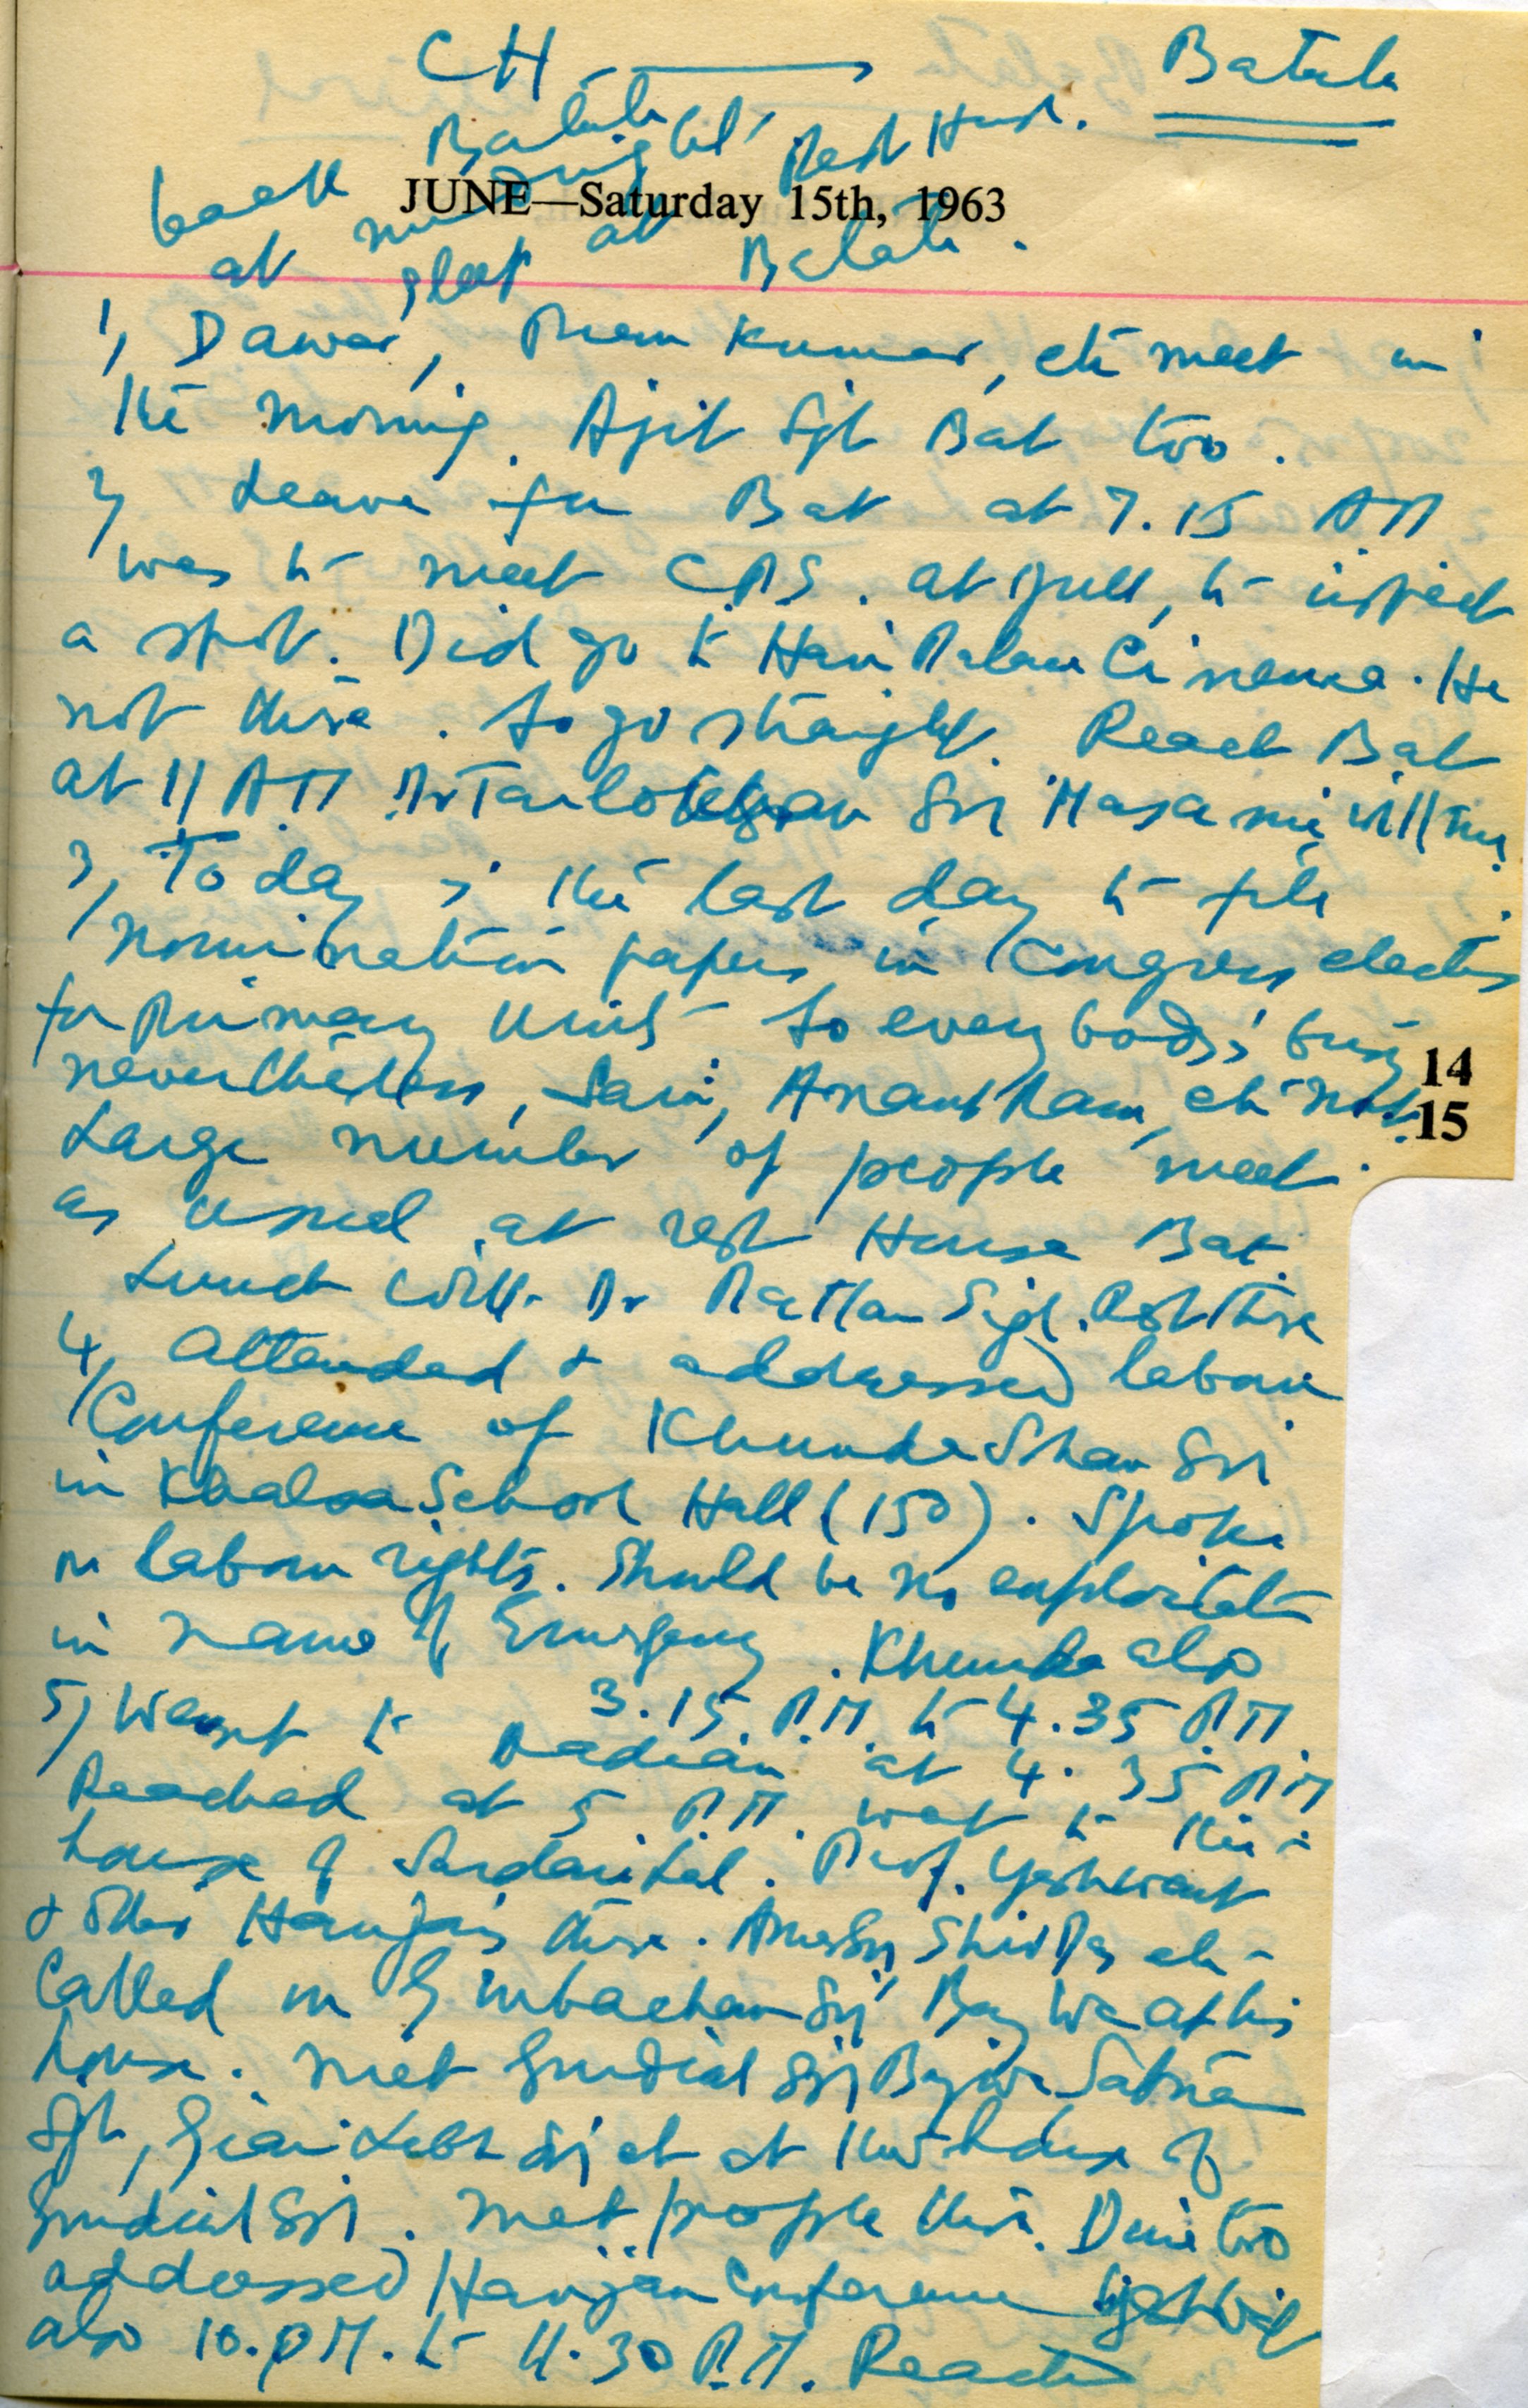 CH → Batala
Batala Rest House.
JUNE—Saturday 15th, 1963
back at midnight
sleep at Batala.
1, Dawar, Prem Kumar, etc meet in
the morning. Ajit Sgh Bat too.
2, Leave for Bat at 7.15 AM
was to meet C.P.S. at Jull, to inspect
a spot. Did go to Hari Palace Cinema. He
not there. So go straight. Reach Bat
at 11 AM Dr Tarlochan Sgh
3, Today is the last day to file
nomination papers in Congress election
for Primary Units So everybody is busy
nevertheless, Saini, Anant Ram, etc meet.
14
15
Large number of people meet
as usual at rest House Bat.
Lunch with Dr Rattan Sigh. Rest there
4, Attended & addressed labour
Conference of Khunda Shan Sgh
in Khalsa School Hall (150). Spoke
on labour rights. Should be no exploitation
in name of Emergency. Khunda also
3.15 P.M. to 4.35 P.M.
5, Went to Qadian at 4.35 P.M
Reached at 5 P.M. went to the
house of Sardari Lal. Prof. Yashwant
& other Harijans there. Amar Sgh Shiv Das etc
Called on Gurbachan Sgh Bajwa at his
house. Met Gurdial Sgh Bajwa Satnam
Sgh, Giani Labh Sgh etc at the house of
Gurdial Sgh. Met people there. Dine too
addressed Harijan Conference
also 10. P.M. to 11.30 P.M. Reached